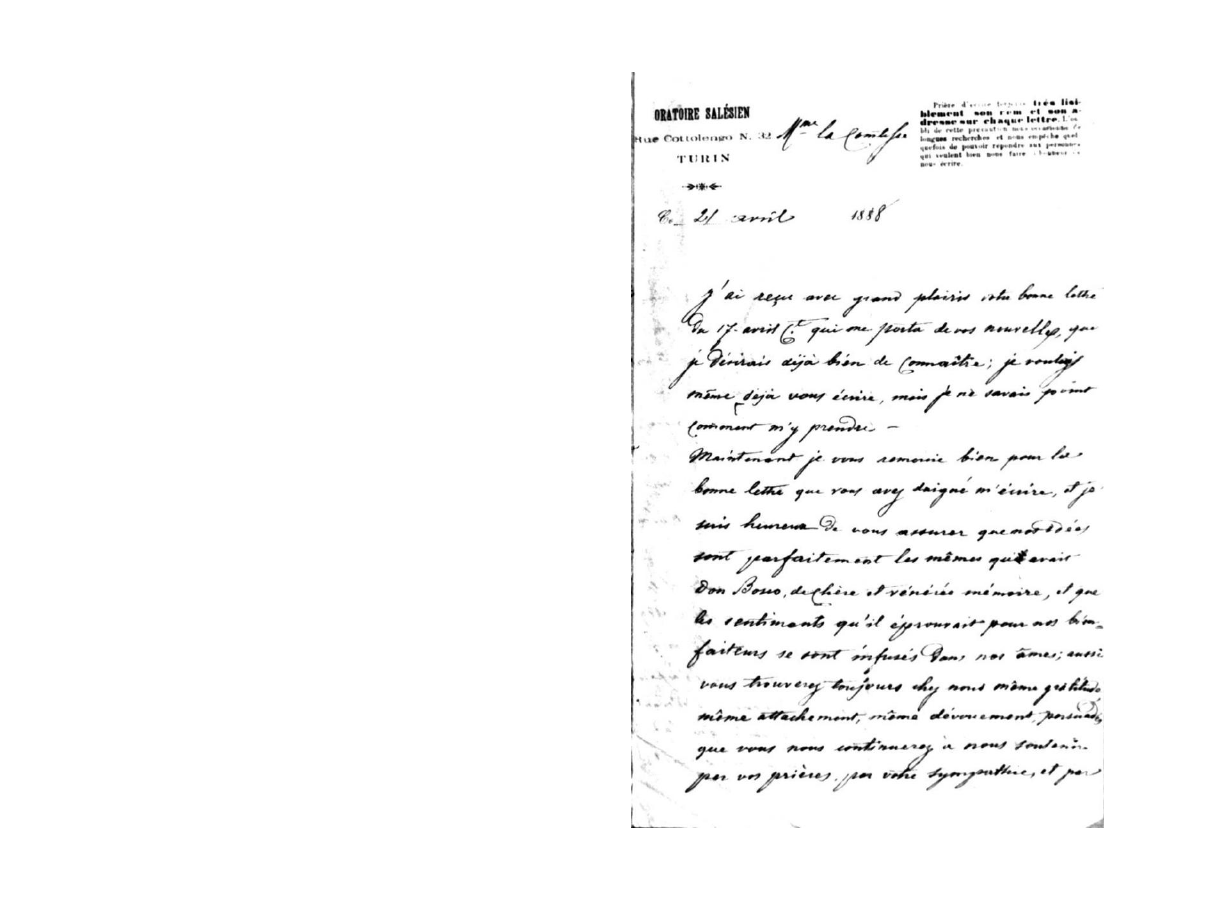 ORATOIRE SALÉSIEN
Rue Cottolengo N. 32
TURIN
Mme la Comtesse
Prière d'écrire toujours très lisi-
blement son nom et son a-
dresse sur chaque lettre. L'ou-
bli de cette précaution nous occasionne de
longues recherches et nous empêche quel
quefois de pouvoir repondre aux personnes
qui veulent bien nous faire l'honneur de
nous écrire.
Le 21 avril 1888
J'ai reçu avec grand plaisir votre bonne lettre
du 17 avril Ct qui me porta de vos nouvelles, que
je désirais déjà bien de Connaître; je voulais
même déjà vous écrire, mais je ne savais point
Comment m'y prendre -
Maintenant je vous remercie bien pour la
bonne lettre que vous avez daigné m'écrire, et je
suis heureux de vous assurer que nos idées
sont parfaitement les mêmes qu'avait
Don Bosco, de Chère et vénérée mémoire, et que
les sentiments qu'il éprouvait pour nos bien-
faiteurs se sont infusés dans nos âmes; aussi
vous trouverez toujours chez nous même gratitude
même attachement, même dévouement, persuadés
que vous nous continuerez à nous soutenir
par vos prières, par votre sympathie, et par